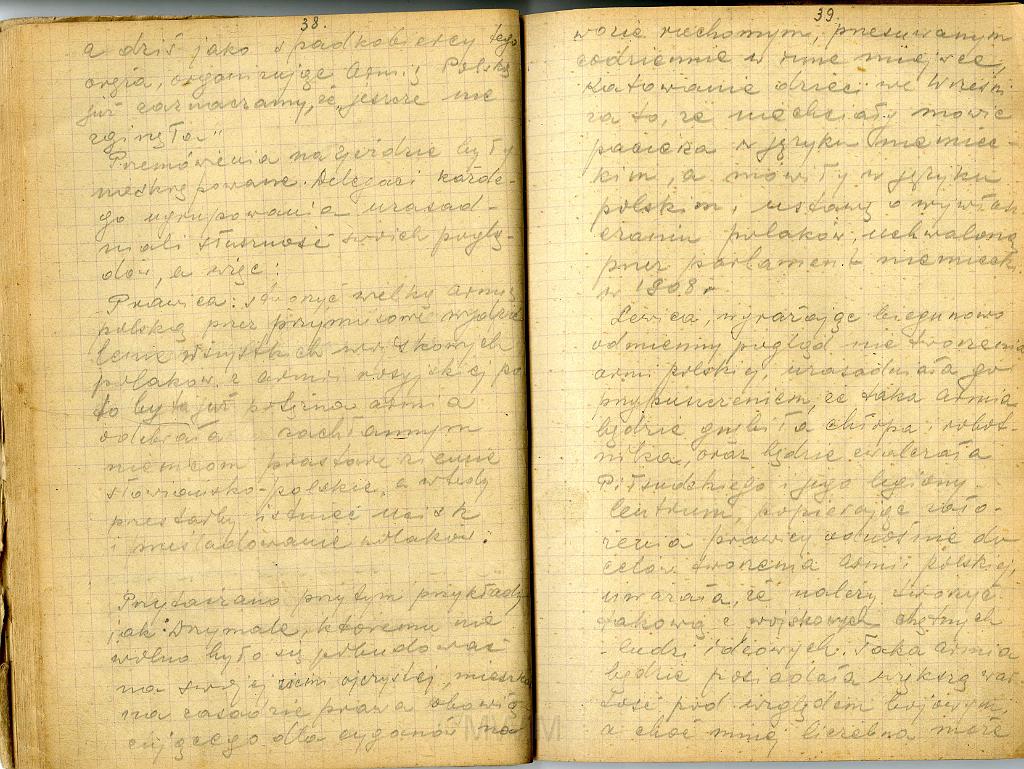 38.
a dziś jako spadkobiercy tego
orgja, organizując Armię Polską
już zaznaczamy, że „jeszcze nie
zginęła"
Przemówienia na zjeździe były
nieskrępowane. Delegaci każde-
go ugrupowania uzasad-
niali słuszność swoich poglą-
dów, a więc:
Prawica: stworzyć wielką armję
polską przez przymusowe wydzie
lenie wszystkich wojskowych
polaków z armii rosyjskiej
to byłaby potężna armia
odebrała zachłannym
niemcom prastare ziemie
słowiańsko-polskie, a wtedy
przestałby istnieć ucisk
i prześladowanie polaków.
Przytaczano przytym przykłady
jak: Drzymałę, któremu nie
wolno było się pobudować
na swojej ziemi ojczystej, mieszka
na zasadzie prawa obowią
zującego dla cyganów na
39.
wozie ruchomym, przesuwanym
codziennie w inne miejsce,
Katowanie dzieci we Wrześni
za to, że niechciały mówić
pacierza w języku niemiec-
kim, a mówiły w języku
polskim, ustawę o wywłasz
czaniu polaków, uchwaloną
przez parlament niemiecki
w 1908 r.
Lewica, wyrażając biegunowo
odmienny pogląd nie tworzenia
armi polskiej, uzasadniała go
przypuszczeniem, że taka armia
będzie gnębiła chłopa i robot-
nika, oraz będzie zwalczała
Piłsudskiego i jego legiony.
Centrum, popierając zało-
żenia prawicy odnośnie do
celów tworzenia Armii polskiej,
uważała, że należy stworzyć
takową z wojskowych chętnych
- ludzi ideowych. Taka armia
będzie posiadała większą war
tość pod względem bojowym,
a choć mniej liczebna może